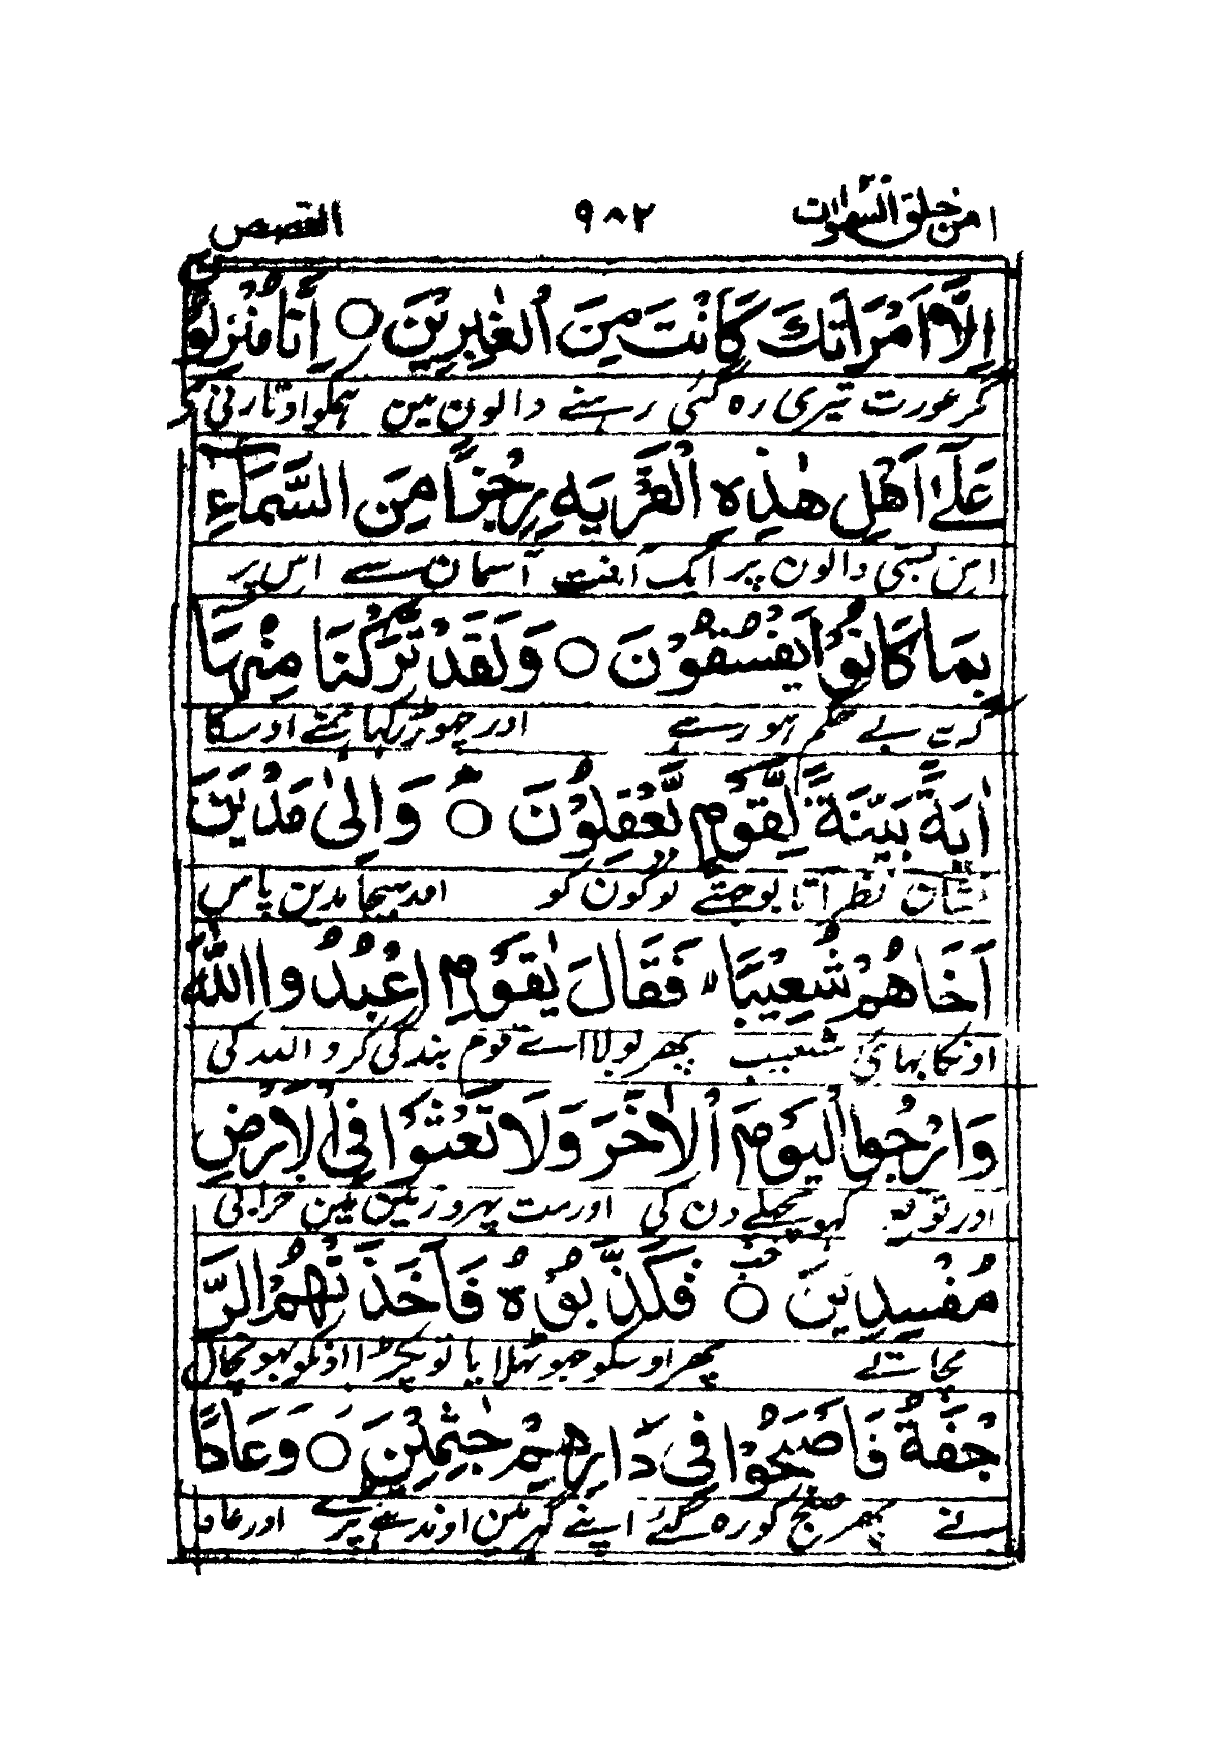 امن خلق السموات ٩٨٢ القصص
اِلَّا امْرَاَتَكَ كَانَتْ مِنَ الْغٰبِرِيْنَ ○ اِنَّا مُنْزِلُوْنَ
كر عورت تيرى ره گئى رہنے والون مين ہمكو اوتارنى
عَلٰٓى اَهْلِ هٰذِهِ الْقَرْيَةِ رِجْزًا مِّنَ السَّمَآءِ
اس بستى والون پر ايک آفت آسمان سے اس پر
بِمَا كَانُوْا يَفْسُقُوْنَ ○ وَلَقَدْ تَّرَكْنَا مِنْهَا
كہ بے حكم ہو رہے اور چهوڑ ركها ہمنے اوسكا
اٰيَةًۢ بَيِّنَةً لِّقَوْمٍ يَّعْقِلُوْنَ ○ وَاِلٰى مَدْيَنَ
نشان نظر آتا بوجهتے لوگون كو اور بهيجا مدين پاس
اَخَاهُمْ شُعَيْبًا فَقَالَ يٰقَوْمِ اعْبُدُوا اللّٰهَ
اونكا بهائى شعيب پهر بولا اے قوم بندگى كرو اللہ كى
وَارْجُوا الْيَوْمَ الْاٰخِرَ وَلَا تَعْثَوْا فِى الْاَرْضِ
اور توقع پچهلے دن كى اورمت پهرو زمين مين خرابى
مُفْسِدِيْنَ ○ فَكَذَّبُوْهُ فَاَخَذَتْهُمُ الرَّ
مچاتے پهر اوسكو جهوٹهلايا تو پكڑا اونكو بهونچال
جْفَةُ فَاَصْبَحُوْا فِىْ دَارِهِمْ جٰثِمِيْنَ ○ وَعَادًا
نے پهر صبح كو ره گئے اپنے گهر مين اوندهے پڑے اور عاد